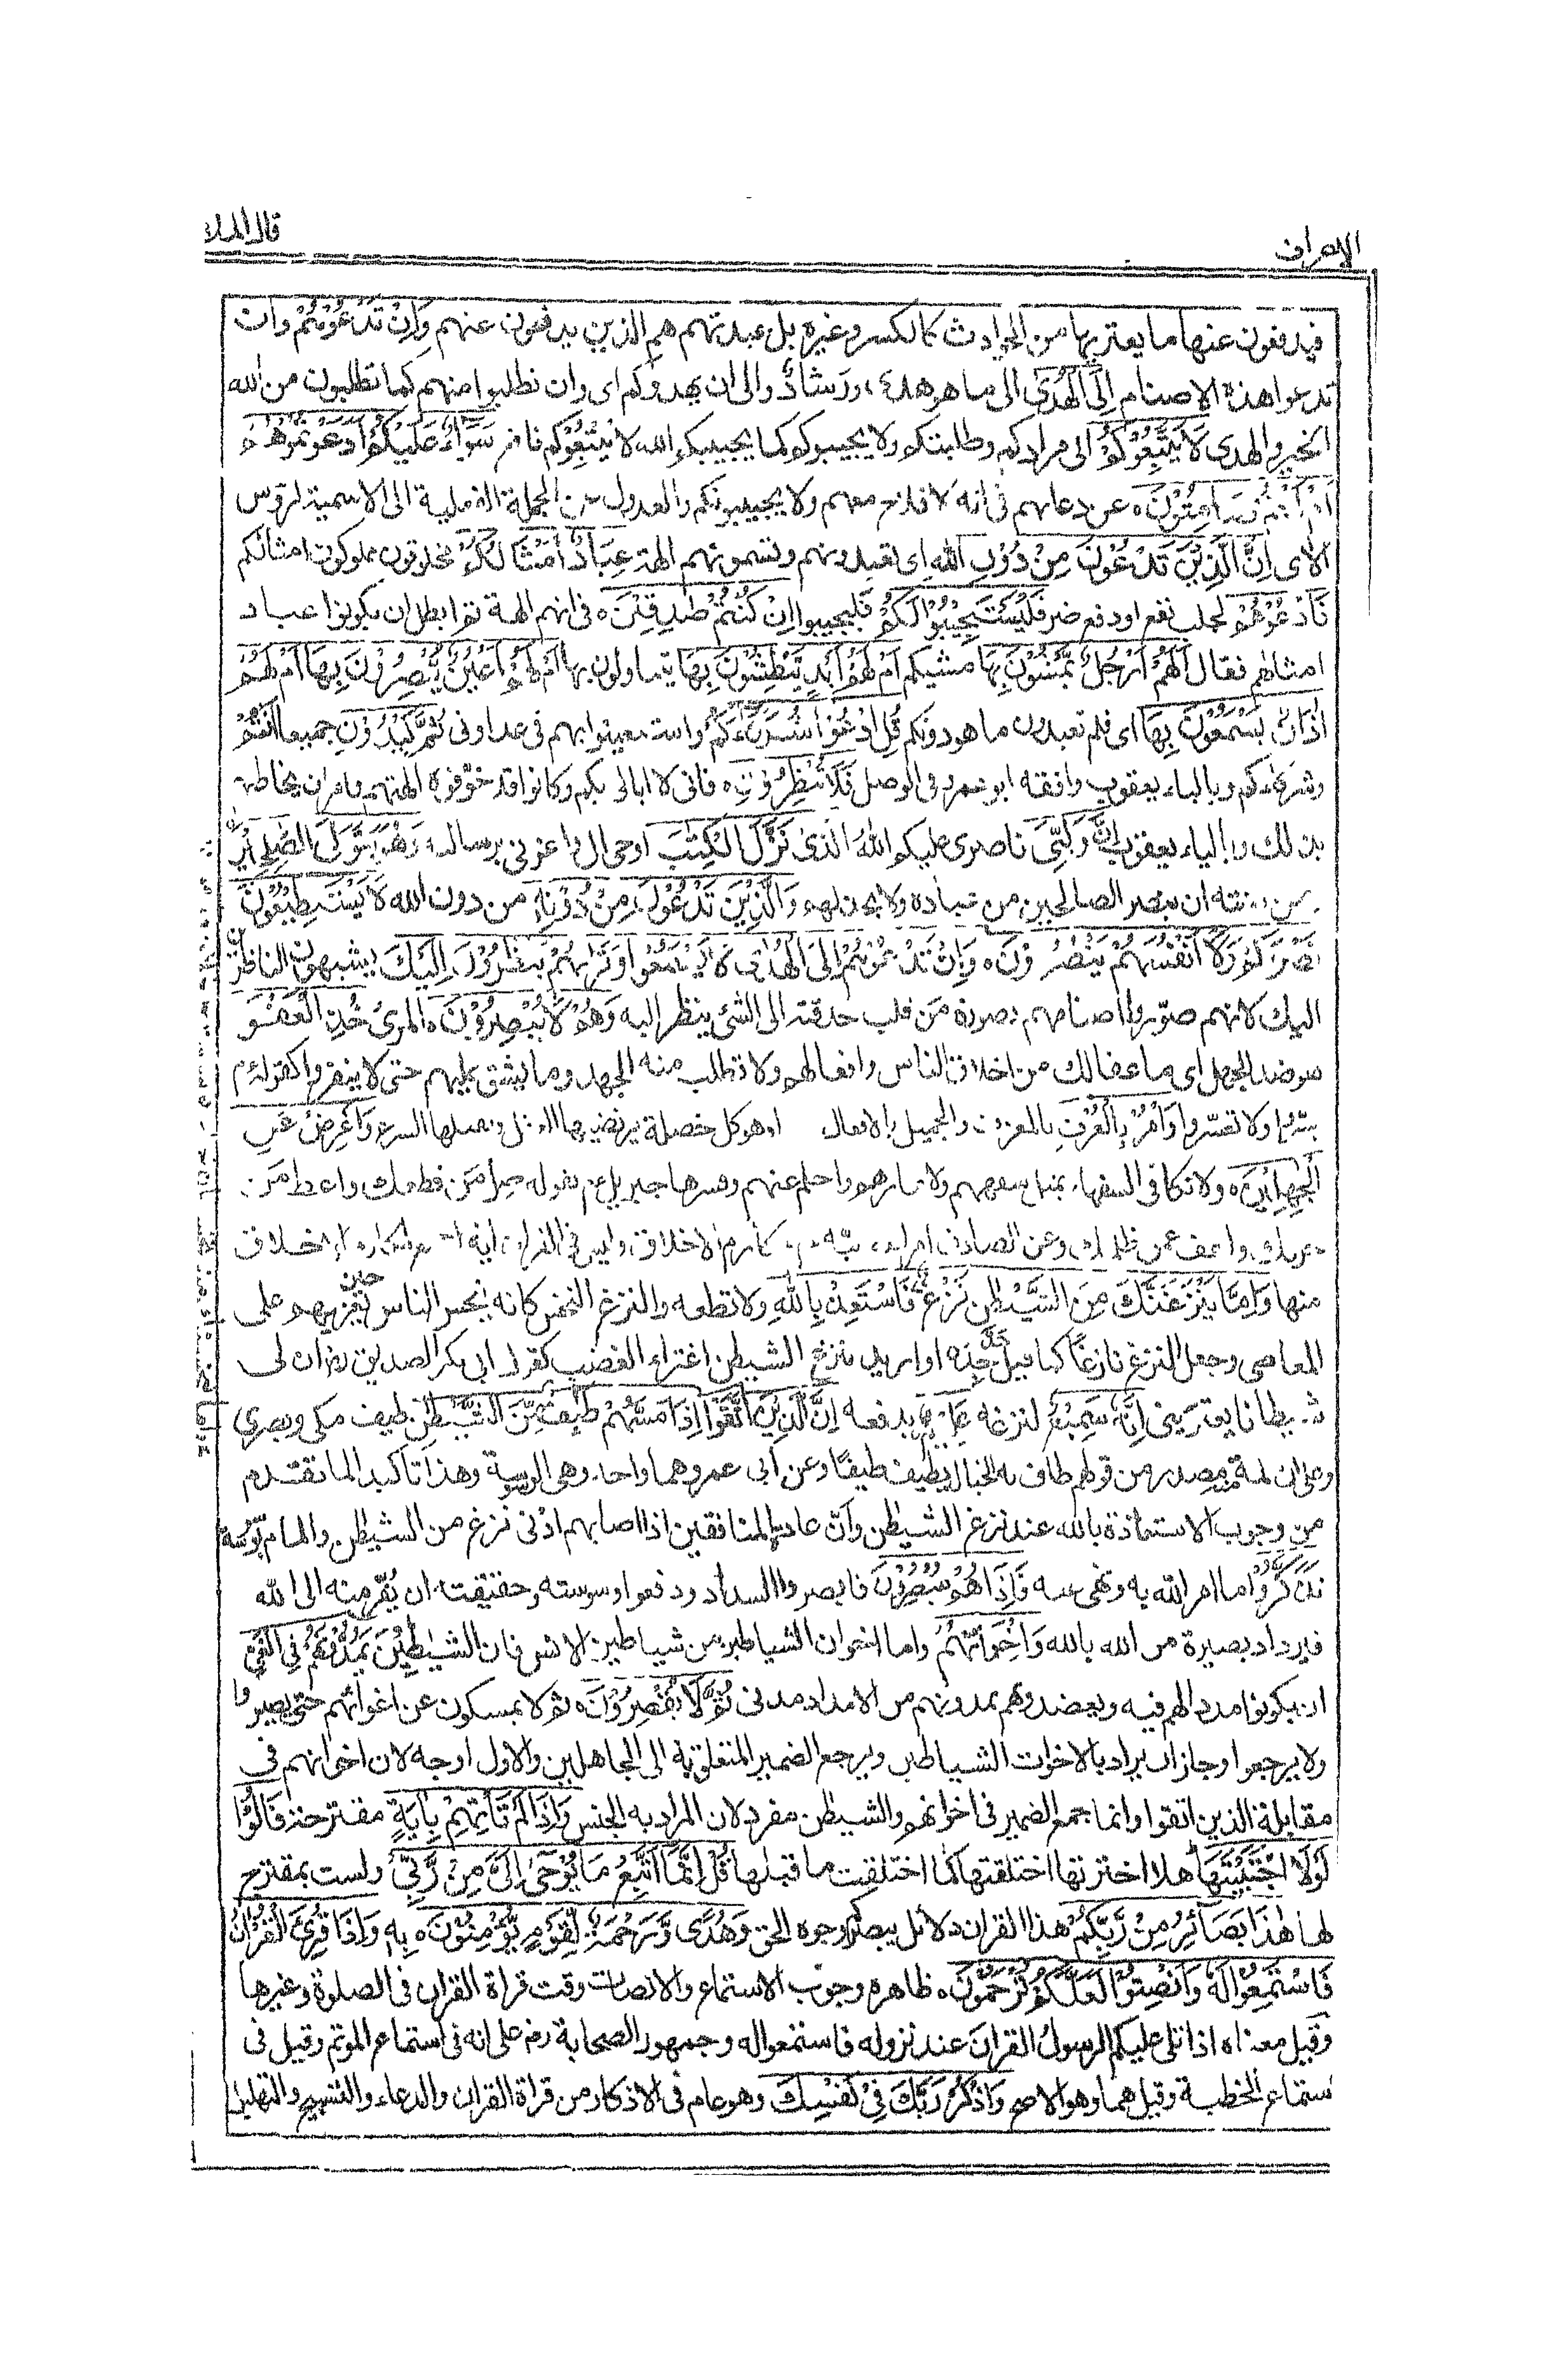 قال الملا
الاعراف
فيدفعون عنها ما يعتريها من الحوادث كالكسر وغيره بل عبدتهم هم الذين يدفعون عنهم وَاِنْ تَدْعُوْهُمْ وان
تدعوا هذه الاصنام اِلَى الْهُدٰى الى ما هو هدى ورشاد والى ان يهدوكم اى وان تطلبوا منهم كما تطلبون من الله
الخير والهدى لَا يَتَّبِعُوْكُمْ الى مرادكم وطلبتكم ولا يجيبوكم كما يجيبكم الله لا يتبعوكم نافع سَوَآءٌ عَلَيْكُمْ اَدَعَوْتُمُوْهُمْ
اَمْ اَنْتُمْ صَامِتُوْنَ ه عن دعائهم فى انه لا فلاح معهم ولا يجيبونكم والعدول عن الجملة الفعلية الى الاسمية لرؤس
الاى اِنَّ الَّذِيْنَ تَدْعُوْنَ مِنْ دُوْنِ اللّٰهِ اى تعبدونهم وتسمونهم الهة عِبَادٌ اَمْثَالُكُمْ مخلوقون مملوكون امثالكم
فَادْعُوْهُمْ لجلب نفع او دفع ضر فَلْيَسْتَجِيْبُوْا لَكُمْ فليجيبوا اِنْ كُنْتُمْ صٰدِقِيْنَ ه فى انهم الهة ثم ابطل ان يكونوا عباد
امثالهم فقال اَلَهُمْ اَرْجُلٌ يَّمْشُوْنَ بِهَا مشيكم اَمْ لَهُمْ اَيْدٍ يَّبْطِشُوْنَ بِهَا يتناولون بها اَمْ لَهُمْ اَعْيُنٌ يُّبْصِرُوْنَ بِهَا اَمْ لَهُمْ
اٰذَانٌ يَّسْمَعُوْنَ بِهَا اى فلم تعبدون ما هو دونكم قُلِ ادْعُوْا شُرَكَآءَكُمْ واستعينوا بهم فى عداوتى ثُمَّ كِيْدُوْنِ جميعا انتم
وشركاءكم وبالياء يعقوب وافقه ابو عمرو فى الوصل فَلَا تُنْظِرُوْنِ ه فانى لا ابالى بكم وكانوا قد خوّفوه الهتهم فامر ان يخاطبهم
بذلك وبالياء يعقوب اِنَّ وَلِيِّىَ ناصرى عليكم اللّٰهُ الَّذِىْ نَزَّلَ الْكِتٰبَ اوحى الىّ واعزنى برسالته وَهُوَ يَتَوَلَّى الصّٰلِحِيْنَ
ومن سنته ان ينصر الصالحين من عباده ولا يخذلهم وَالَّذِيْنَ تَدْعُوْنَ مِنْ دُوْنِهٖ من دون الله لَا يَسْتَطِيْعُوْنَ
نَصْرَكُمْ وَلَا اَنْفُسَهُمْ يَنْصُرُوْنَ ه وَاِنْ تَدْعُوْهُمْ اِلَى الْهُدٰى لَا يَسْمَعُوْا وَتَرٰىهُمْ يَنْظُرُوْنَ اِلَيْكَ يشبهون الناظرين
اليك لانهم صوّروا اصنامهم بصورة من قلب حدقته الى الشئ ينظر اليه وَهُمْ لَا يُبْصِرُوْنَ ه المرئ خُذِ الْعَفْوَ
هو ضد الجهل اى ما عفا لك من اخلاق الناس وافعالهم ولا تطلب منه الجهد وما يشق عليهم حتى لا ينفروا كقوله عم
يسّروا ولا تعسّروا وَاْمُرْ بِالْعُرْفِ بالمعروف والجميل بالافعال او هو كل خصلة يرتضيها العقل ويقبلها الشرع وَاَعْرِضْ عَنِ
الْجٰهِلِيْنَ ه ولا تكافى السفهاء بمثل سفههم ولا تمارهم واحلم عنهم وفسرها جبريل عم بقوله صل من قطعك واعط من
حرمك واعف عمن ظلمك وعن الصادق امر الله نبيه عم بمكارم الاخلاق وليس فى القران اية اجمع لمكارم الاخلاق
منها وَاِمَّا يَنْزَغَنَّكَ مِنَ الشَّيْطٰنِ نَزْغٌ فَاسْتَعِذْ بِاللّٰهِ ولا تطعه والنزغ النخس كانه ينخس الناس حين يغريهم على
المعاصى وجعل النزغ نازغًا كما قيل جد جدّه او اريد بنزغ الشيطن اعتراء الغضب كقول ابى بكر الصديق رض ان لى
شيطانا يعترينى اِنَّهٗ سَمِيْعٌ لنزغه عَلِيْمٌ ه بدفعه اِنَّ الَّذِيْنَ اتَّقَوْا اِذَا مَسَّهُمْ طٰٓئِفٌ مِّنَ الشَّيْطٰنِ طيف مكى وبصرى
وعلى اى لمة منه مصدر من قولهم طاف به الخيال يطيف طيفًا وعن ابى عمرو هما واحد وهى الوسوسة وهذا تاكيد لما تقدم
من وجوب الاستعاذة بالله عند نزغ الشيطن وانّ عادة المتقين اذا اصابهم ادنى نزغ من الشيطن والمام بوسوسته
تَذَكَّرُوْا ما امر الله به ونهى عنه فَاِذَا هُمْ مُّبْصِرُوْنَ فابصروا السداد ودفعوا وسوسته وحقيقته ان يفرّ منه الى الله
فيزداد بصيرة من الله بالله وَاِخْوَانُهُمْ واما اخوان الشياطين من شياطين الانس فان الشيٰطين يَمُدُّوْنَهُمْ فِى الْغَىِّ
اى يكونوا مددا لهم فيه ويعضدوهم يمدونهم من الامداد مدنى ثُمَّ لَا يُقْصِرُوْنَ ه ثم لا يمسكون عن اغوائهم حتى يصيروا
ولا يرجعوا وجاز ان يراد بالاخوان الشياطين ويرجع الضمير المتعلق به الى الجاهلين والاول اوجه لان اخوانهم فى
مقابلة الذين اتقوا وانما جمع الضمير فى اخوانهم والشيطن مفرد لان المراد به الجنس وَاِذَا لَمْ تَاْتِهِمْ بِاٰيَةٍ مقترحة قَالُوْا
لَوْلَا اجْتَبَيْتَهَا هلا اخترتها اختلقتها كما اختلقت ما قبلها قُلْ اِنَّمَا اَتَّبِعُ مَا يُوْحٰى اِلَىَّ مِنْ رَّبِّىْ ولست بمقترح
لها هٰذَا بَصَآئِرُ مِنْ رَّبِّكُمْ هذا القران دلائل يبصركم وجوه الحق وَهُدًى وَّرَحْمَةٌ لِّقَوْمٍ يُّؤْمِنُوْنَ ه به وَاِذَا قُرِئَ الْقُرْاٰنُ
فَاسْتَمِعُوْا لَهٗ وَاَنْصِتُوْا لَعَلَّكُمْ تُرْحَمُوْنَ ه ظاهره وجوب الاستماع والانصات وقت قراة القران فى الصلوة وغيرها
وقيل معناه اذا تلى عليكم الرسول القران عند نزوله فاستمعوا له وجمهور الصحابة رض على انه فى استماع المؤتم وقيل فى
استماع الخطبة وقيل هما وهو الاصح وَاذْكُرْ رَّبَّكَ فِىْ نَفْسِكَ وهو عام فى الاذكار من قراة القران والدعاء والتسبيح والتهليل